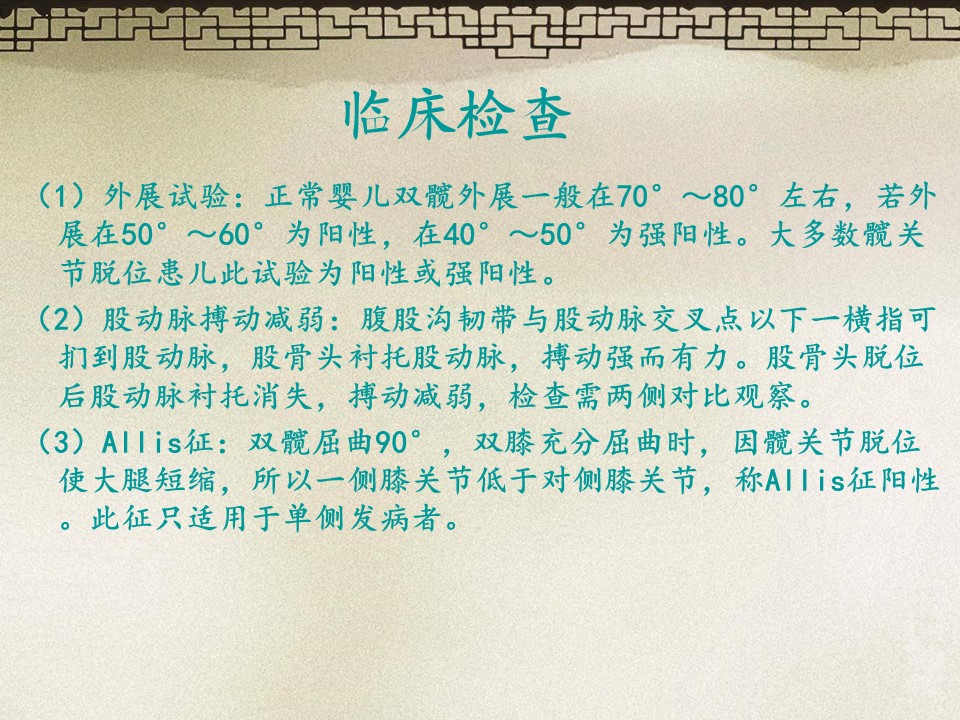 临床检查
（1）外展试验：正常婴儿双髋外展一般在70°～80°左右，若外
展在50°～60°为阳性，在40°～50°为强阳性。大多数髋关
节脱位患儿此试验为阳性或强阳性。
（2）股动脉搏动减弱：腹股沟韧带与股动脉交叉点以下一横指可
扪到股动脉，股骨头衬托股动脉，搏动强而有力。股骨头脱位
后股动脉衬托消失，搏动减弱，检查需两侧对比观察。
（3）Allis征：双髋屈曲90°，双膝充分屈曲时，因髋关节脱位
使大腿短缩，所以一侧膝关节低于对侧膝关节，称Allis征阳性
。此征只适用于单侧发病者。